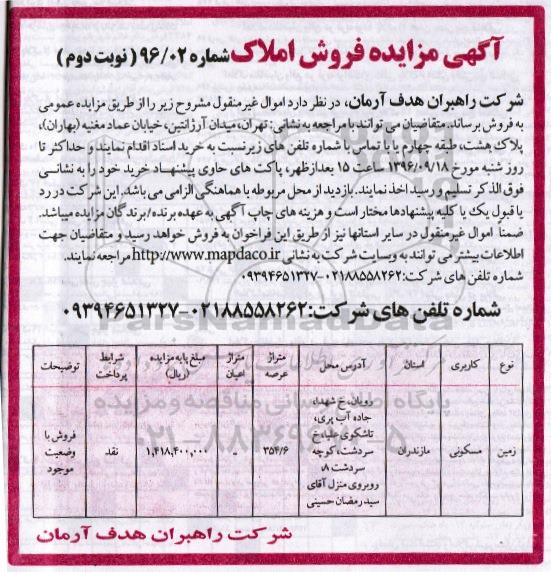 آگهی مزایده فروش املاک شماره ۹۶/۰۲ (نوبت دوم)
شرکت راهبران هدف آرمان، در نظر دارد اموال غیرمنقول مشروح زیر را از طریق مزایده عمومی
به فروش برساند. متقاضیان می توانند با مراجعه به نشانی: تهران، میدان آرژانتین، خیابان عماد مغنیه (بهاران)،
پلاک هشت، طبقه چهارم یا با تماس با شماره تلفن های زیر نسبت به خرید اسناد اقدام نمایند و حداکثر تا
روز شنبه مورخ ۱۳۹۶/۰۹/۱۸ ساعت ۱۵ بعدازظهر، پاکت های حاوی پیشنهاد خرید خود را به نشانی
فوق الذکر تسلیم و رسید اخذ نمایند. بازدید از محل مربوطه با هماهنگی الزامی می باشد. این شرکت در رد
یا قبول یک یا کلیه پیشنهادها مختار است و هزینه های چاپ آگهی به عهده برنده/برندگان مزایده میباشد.
ضمناً اموال غیرمنقول در سایر استانها نیز از طریق این فراخوان به فروش خواهد رسید و متقاضیان جهت
اطلاعات بیشتر می توانند به وبسایت شرکت به نشانی http://www.mapdaco.ir مراجعه نمایند.
شماره تلفن های شرکت: ۰۲۱۸۸۵۵۸۲۶۲-۰۹۳۹۴۶۵۱۳۲۷
شماره تلفن های شرکت: ۰۲۱۸۸۵۵۸۲۶۲-۰۹۳۹۴۶۵۱۳۲۷
نوع کاربری استان آدرس محل متراژ عرصه متراژ اعیان مبلغ پایه مزایده (ریال) شرایط پرداخت توضیحات
زمین مسکونی مازندران رویان، خ شهدا، جاده آب پری، تاشکوی علیا، خ سردشت، کوچه سردشت ۸، روبروی منزل آقای سید رمضان حسینی ۳۵۴/۶ - ۱,۴۱۸,۴۰۰,۰۰۰ نقد فروش با وضعیت موجود
شرکت راهبران هدف آرمان
ParsNamadData
پایگاه اطلاع رسانی مناقصه و مزایده